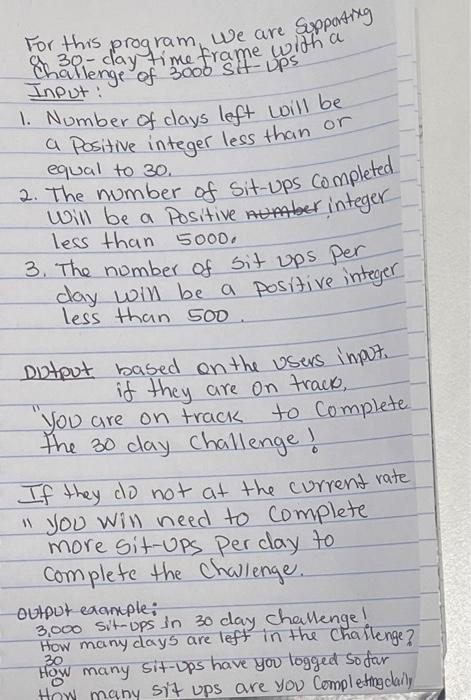 For this program, we are supporting
a 30-day time frame with a
Challenge of 3000 sit-ups
Input:
1. Number of days left will be
a Positive integer less than or
equal to 30.
2. The number of Sit-ups Completed
will be a Positive number integer
less than 5000.
3. The number of Sit ups per
day will be a positive integer
less than 500.
Output based on the users input.
if they are on track,
"You are on track to Complete
the 30 day Challenge!
If they do not at the current rate
" You will need to Complete
more Sit-ups Per day to
Complete the Challenge.
Output example:
3,000 Sit-ups in 30 day Challenge!
How many days are left in the Challenge?
30
How many Sit-ups have you logged So far
How many sit ups are you Completing daily